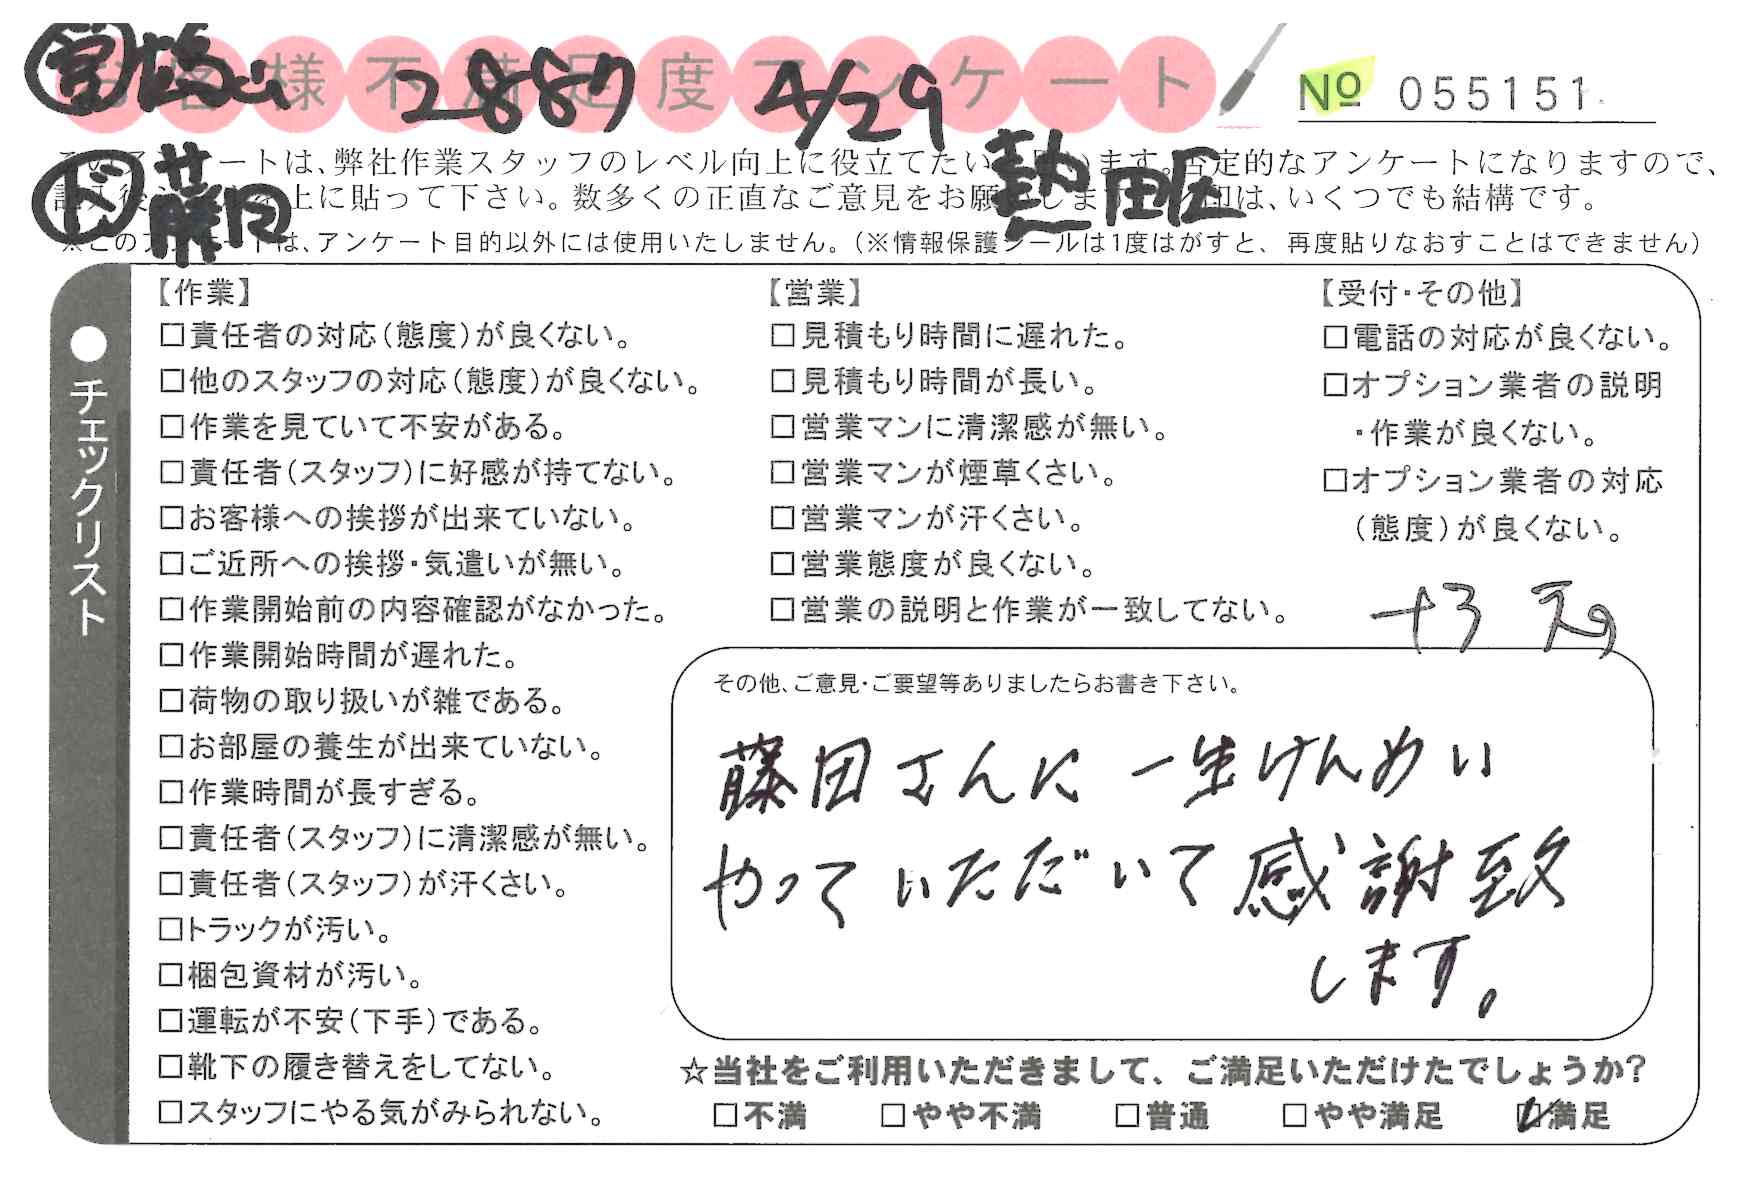 お客様不満足度アンケート
№ 055151
営 2887 4/29
ド 藤田 熱田区
このアンケートは、弊社作業スタッフのレベル向上に役立てたいと思います。否定的なアンケートになりますので、
記入後シールを上に貼って下さい。数多くの正直なご意見をお願いします。印は、いくつでも結構です。
※このアンケートは、アンケート目的以外には使用いたしません。(※情報保護シールは1度はがすと、再度貼りなおすことはできません)
●チェックリスト
【作業】
□責任者の対応(態度)が良くない。
□他のスタッフの対応(態度)が良くない。
□作業を見ていて不安がある。
□責任者(スタッフ)に好感が持てない。
□お客様への挨拶が出来ていない。
□ご近所への挨拶・気遣いが無い。
□作業開始前の内容確認がなかった。
□作業開始時間が遅れた。
□荷物の取り扱いが雑である。
□お部屋の養生が出来ていない。
□作業時間が長すぎる。
□責任者(スタッフ)に清潔感が無い。
□責任者(スタッフ)が汗くさい。
□トラックが汚い。
□梱包資材が汚い。
□運転が不安(下手)である。
□靴下の履き替えをしてない。
□スタッフにやる気がみられない。
【営業】
□見積もり時間に遅れた。
□見積もり時間が長い。
□営業マンに清潔感が無い。
□営業マンが煙草くさい。
□営業マンが汗くさい。
□営業態度が良くない。
□営業の説明と作業が一致してない。
【受付・その他】
□電話の対応が良くない。
□オプション業者の説明
・作業が良くない。
□オプション業者の対応
(態度)が良くない。
+3
その他、ご意見・ご要望等ありましたらお書き下さい。
藤田さんに一生けんめい
やっていただいて感謝致
します。
☆当社をご利用いただきまして、ご満足いただけたでしょうか?
□不満 □やや不満 □普通 □やや満足 ☑満足